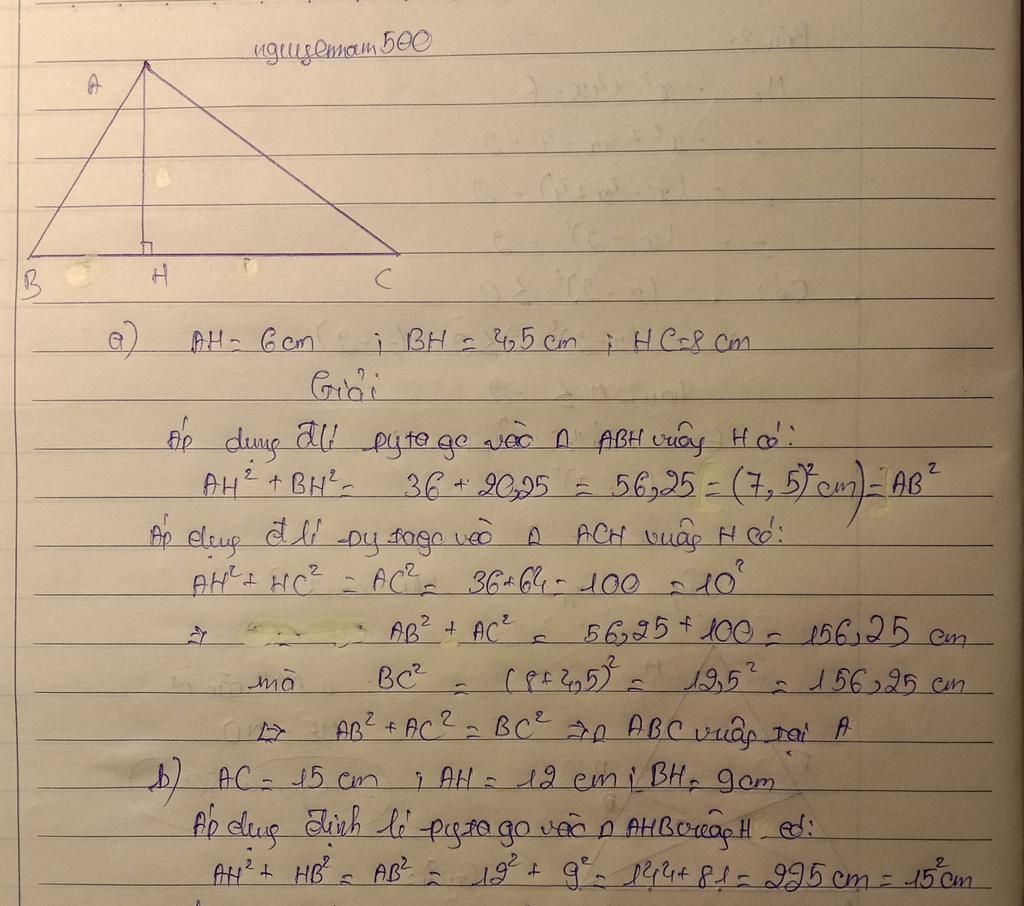 nguyetnam500
A
B H C
a) AH = 6cm ; BH = 4,5 cm ; HC=8 cm
Giải
Áp dụng đlí pytago vào Δ ABH vuông H có:
AH² + BH² = 36 + 20,25 = 56,25 = (7,5)² cm) = AB²
Áp dụng đlí pytago vào Δ ACH vuông H có:
AH² + HC² = AC² = 36+64 = 100 = 10²
⇒ AB² + AC² = 56,25 + 100 = 156,25 cm
mà BC² = (8+4,5)² = 12,5² = 156,25 cm
⇔ AB² + AC² = BC² ⇒ Δ ABC vuông tại A
b) AC = 15 cm ; AH = 12 cm ; BH = 9cm
Áp dụng định lí pytago vào Δ AHB vuông H có:
AH² + HB² = AB² = 12² + 9² = 144+81 = 225 cm = 15² cm